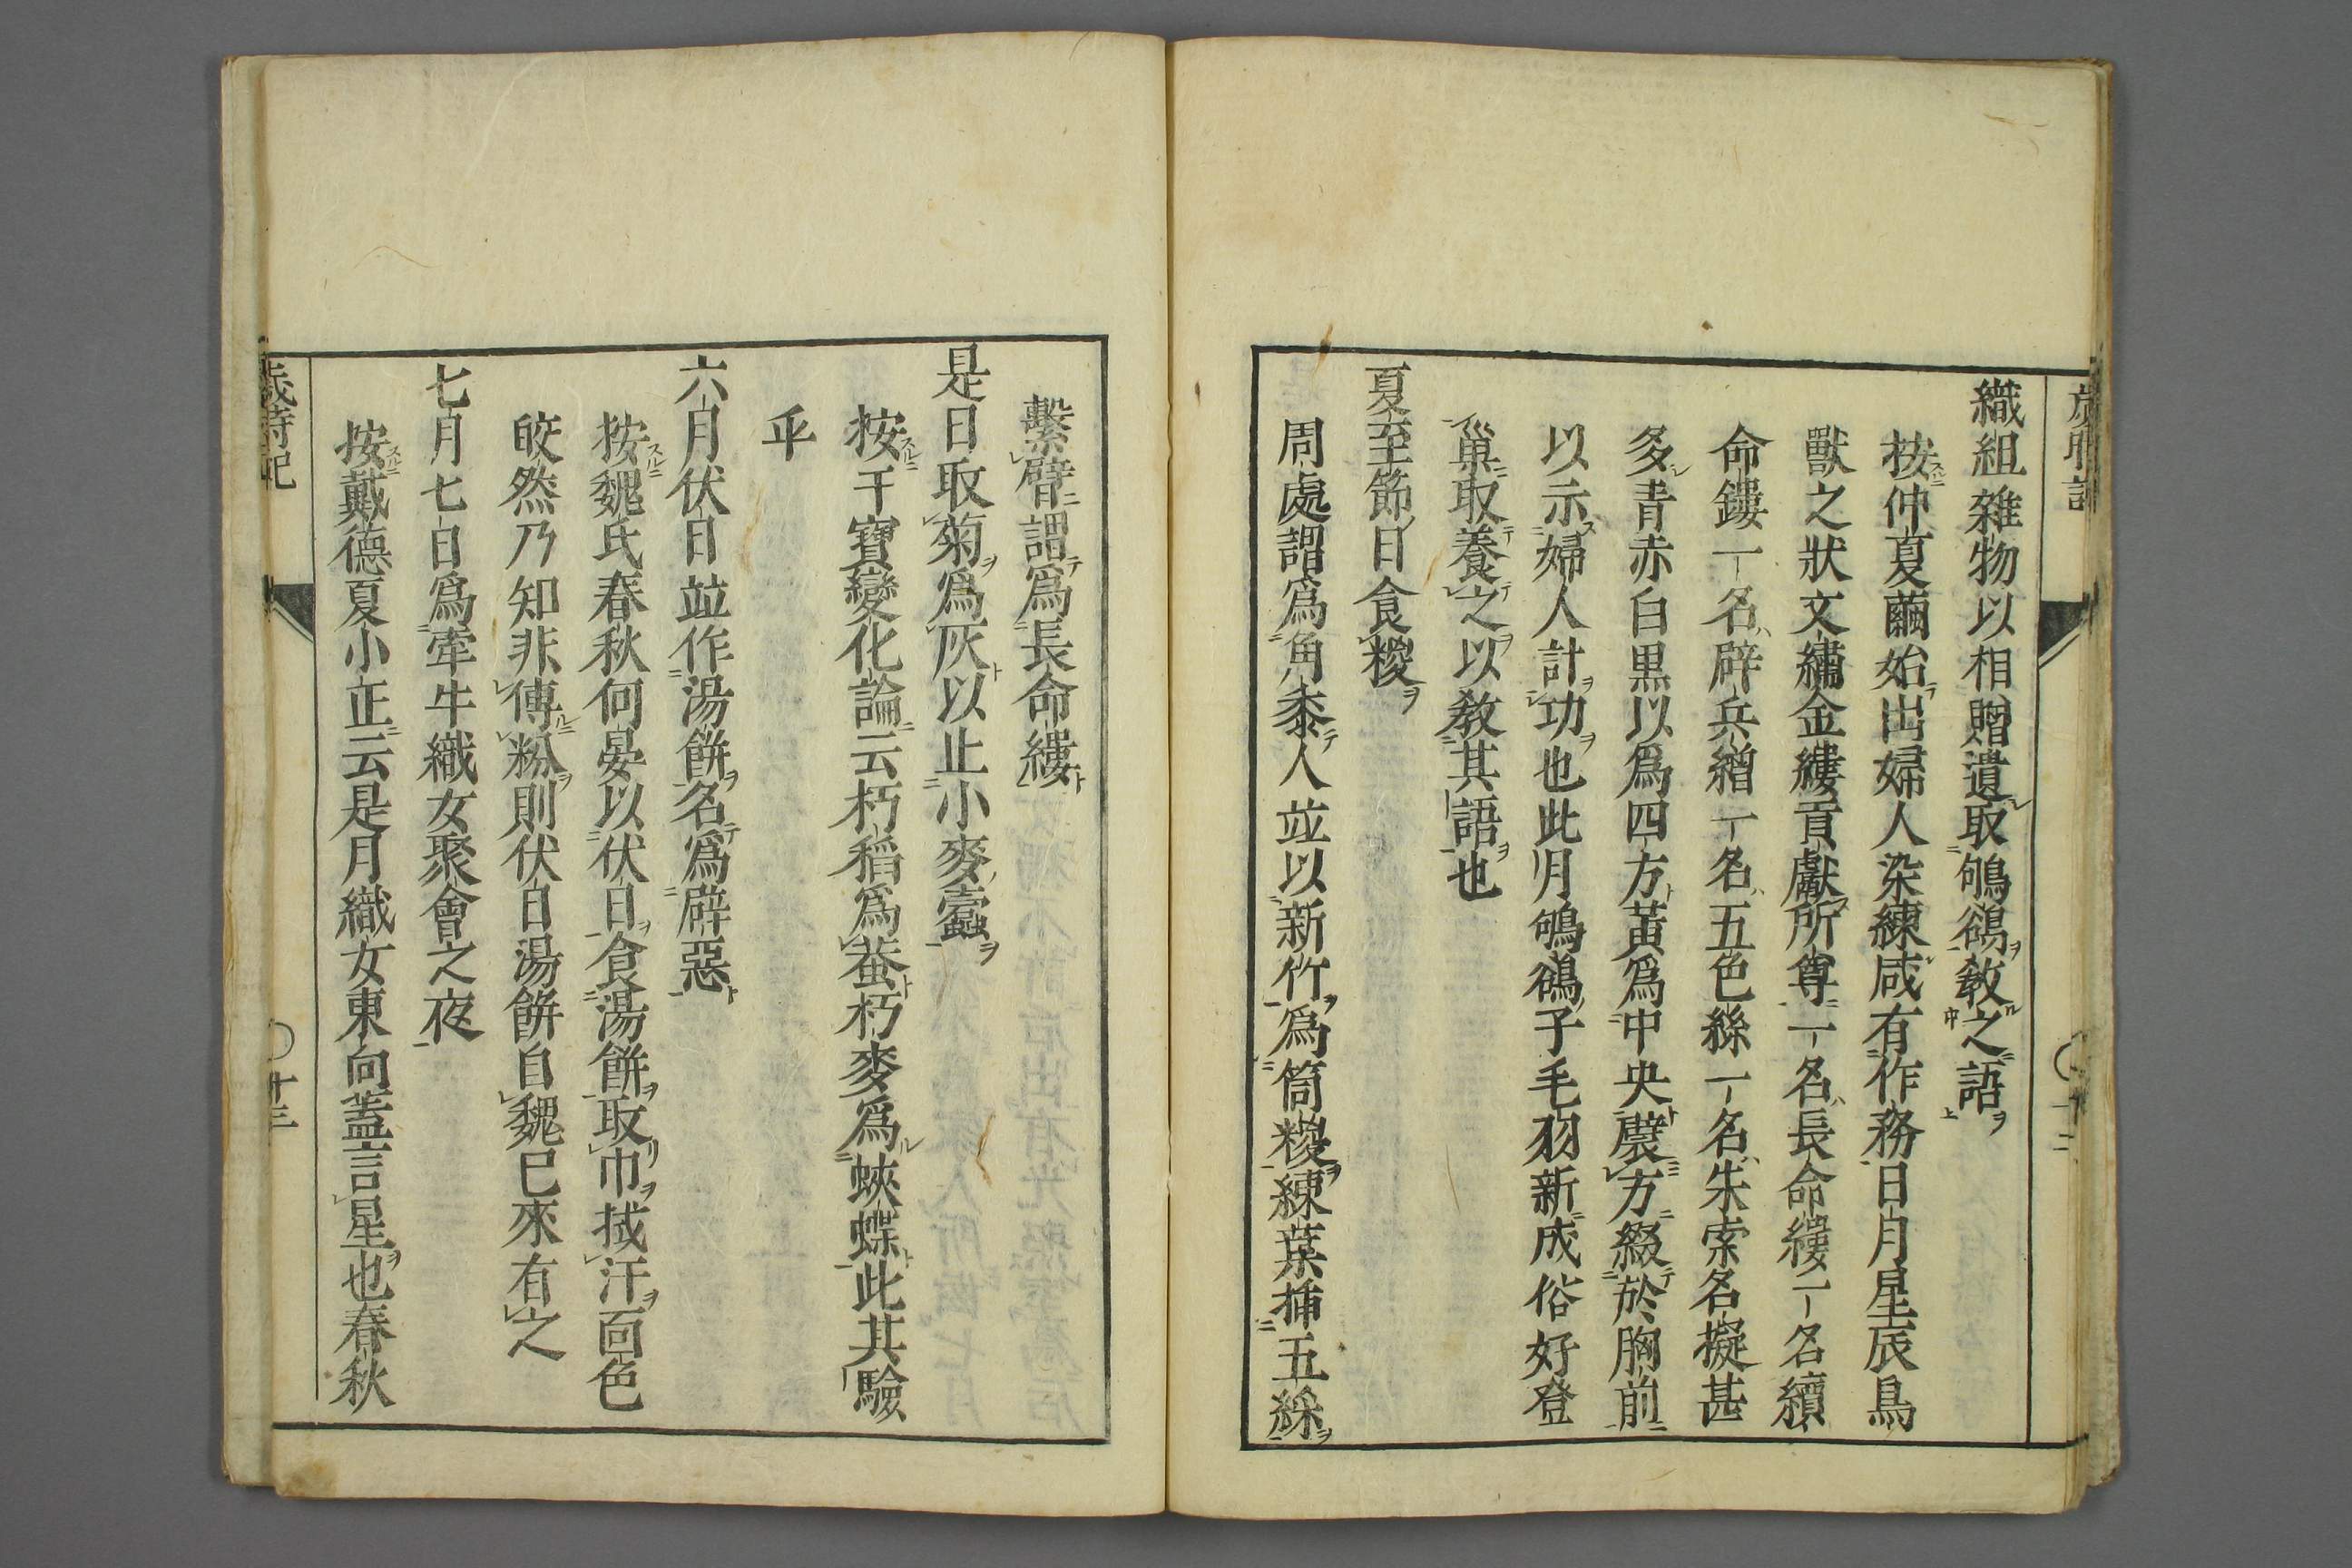 織組雜物以相贈遺取鴝鵒教之語
按仲夏繭始出婦人染練咸有作務日月星辰鳥
獸之狀文繡金縷貢獻所尊一名長命縷一名續
命鏤一名辟兵繒一名五色絲一名朱索名擬甚
多青赤白黒以爲四方黃爲中央襞方綴於胸前
以示婦人計功也此月鴝鵒子毛羽新成俗好登
巢取養之以敎其語也
夏至節日食糉
周處謂爲角黍人並以新竹爲筒糉練葉插五綵
繫臂謂爲長命縷
是日取菊爲灰以止小麥蠹
按干寶變化論云朽稻爲蛬朽麥爲蛺蝶此其驗
乎
六月伏日並作湯餅名爲辟惡
按魏氏春秋何晏以伏日食湯餅取巾拭汗面色
皎然乃知非傅粉則伏日湯餅自魏已來有之
七月七日爲牽牛織女聚會之夜
按戴德夏小正云是月織女東向蓋言星也春秋
歲時記
十三